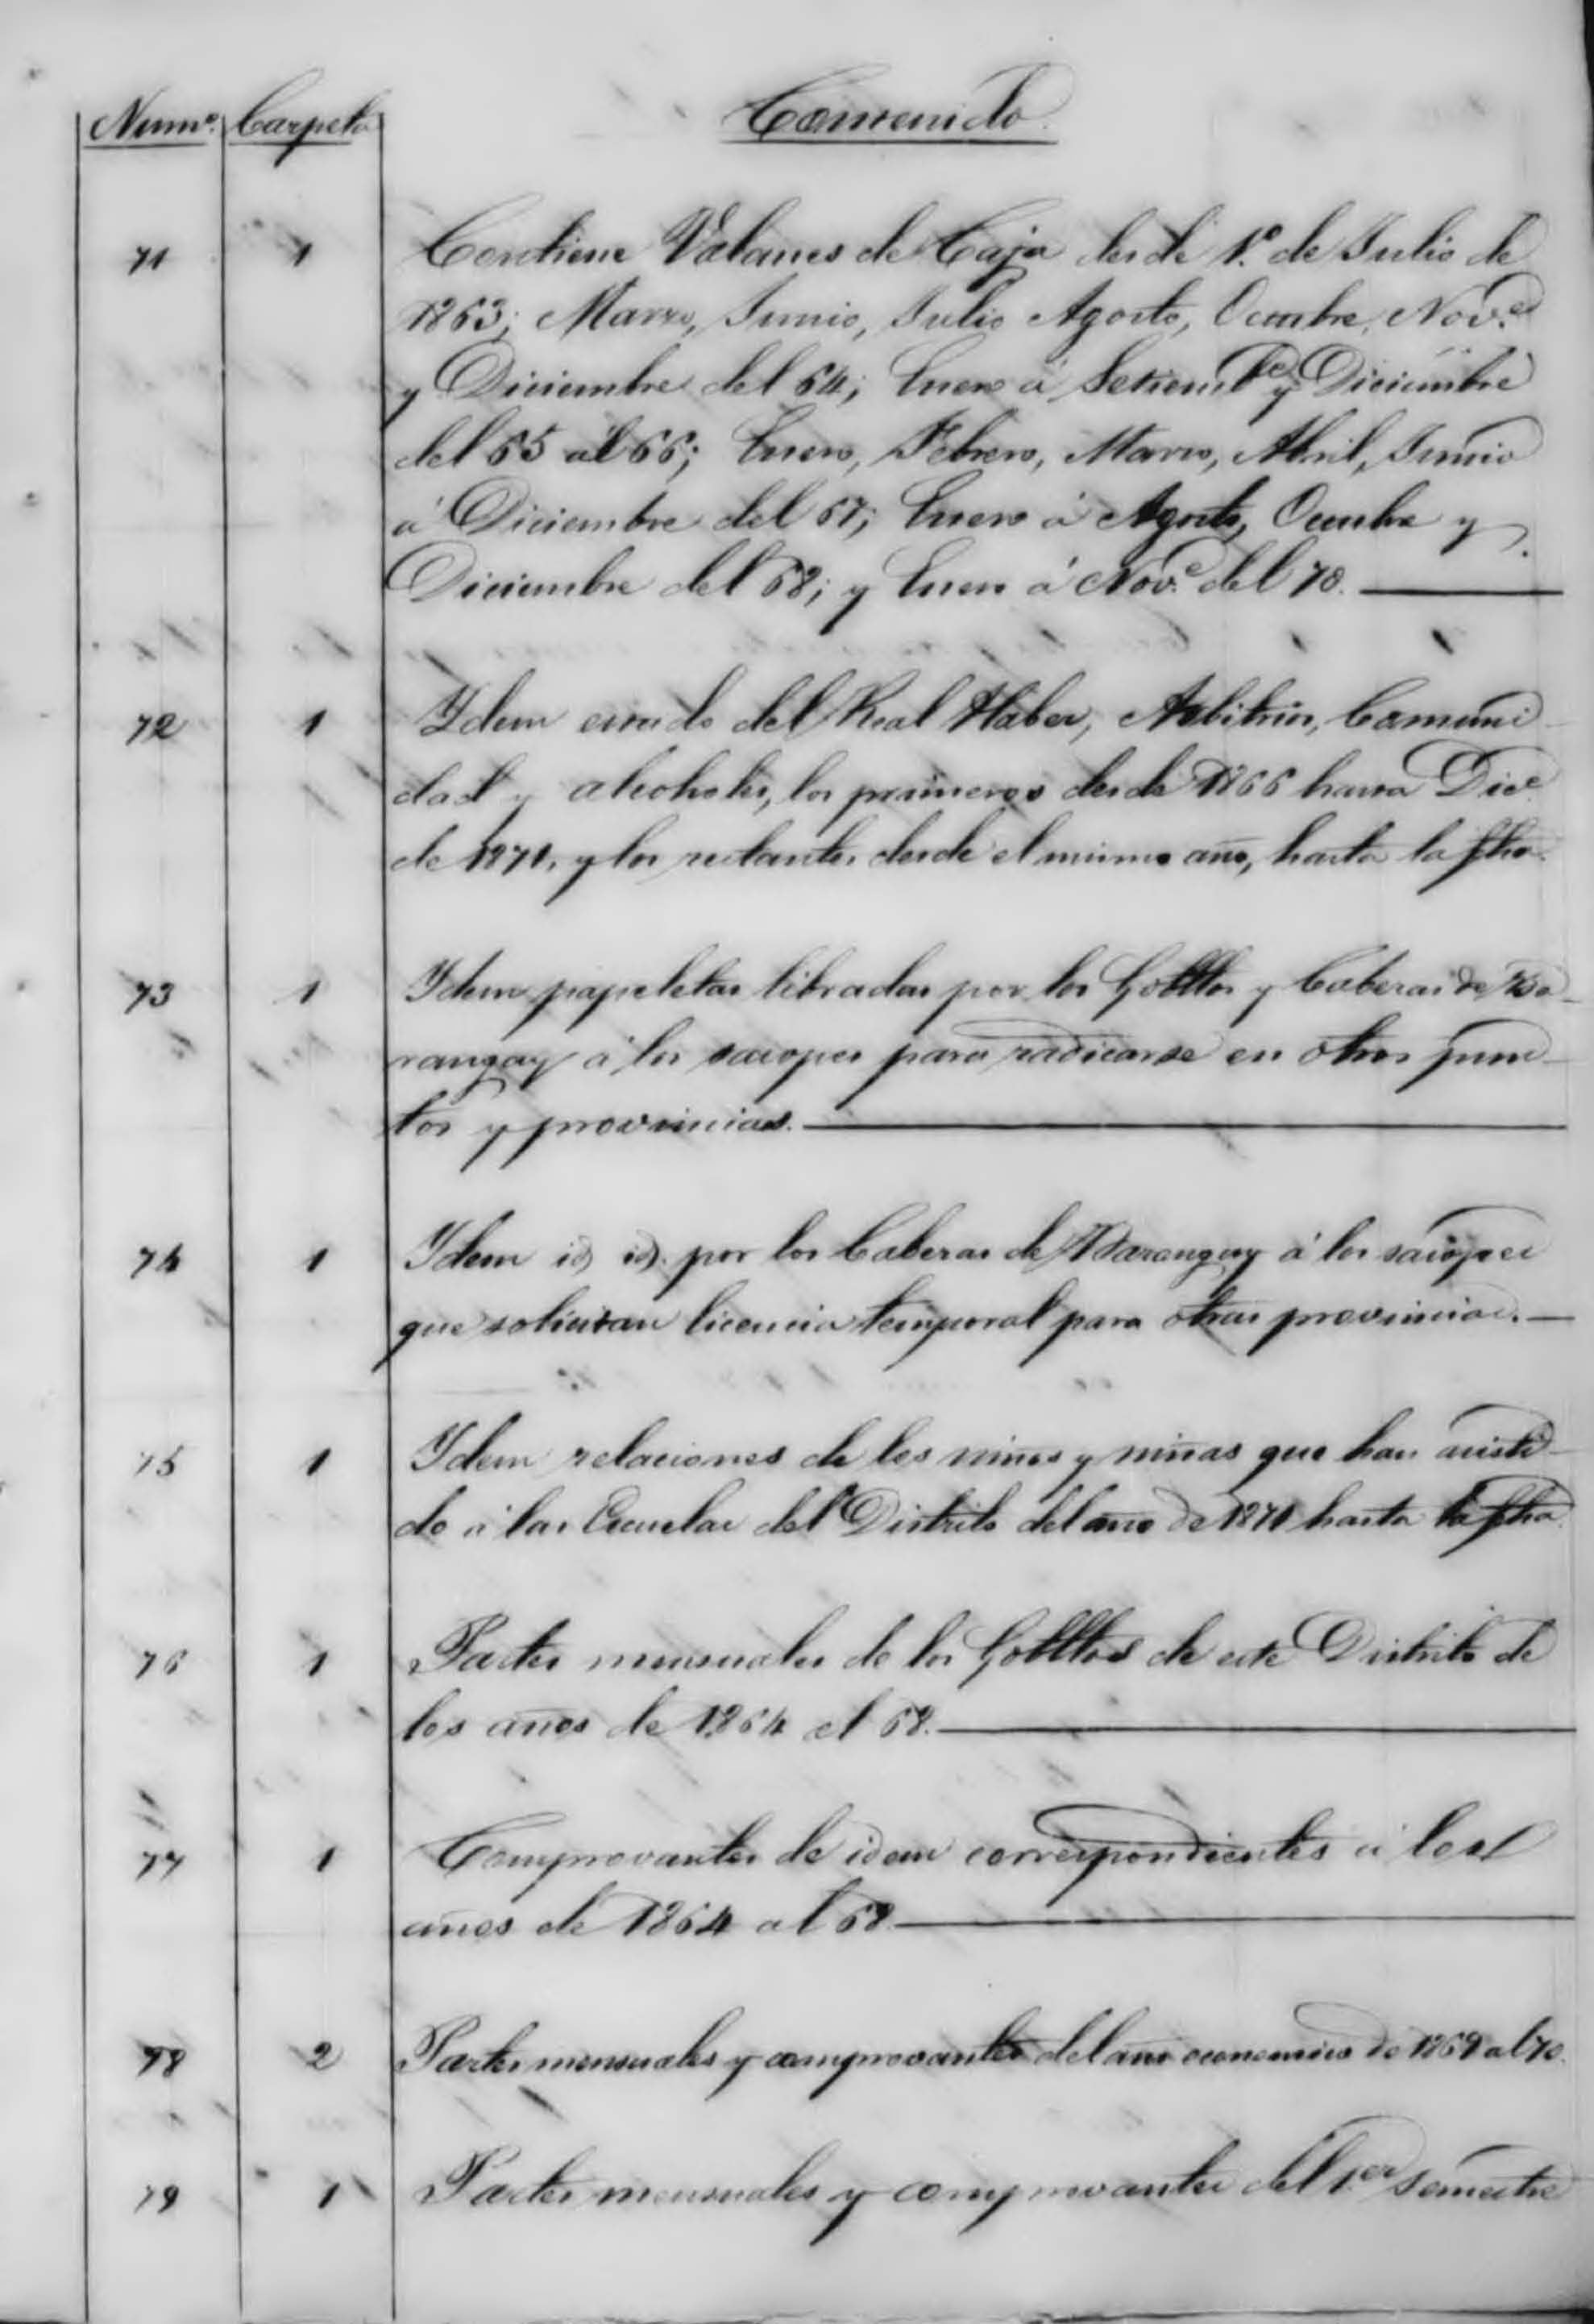 Numº. Carpeta Contenido.
71 1 Contiene Valances de Caja desde 1º. de Julio de
1863; Marzo, Junio, Julio Agosto, Octubre, Nov.e
y Diciembre del 64; Enero á Setiemb.e y Diciembre
del 65 al 66; Enero, Febrero, Marzo, Abril, Junio
á Diciembre del 67; Enero á Agosto, Octubre y
Diciembre del 68; y Enero á Nov.e del 70.
72 1 Ydem estado del Real Haber, Arbitrios, Comuni
dad y alcoholes, los primeros desde 1866 hasta Dice.
de 1871, y los restantes desde el mismo año, hasta la fha.
73 1 Ydem papeletas libradas por los Gobllos y Cabezas de Ba-
rangay á los sacopes para radicarse en otros pun-
tos y provincias.
74 1 Ydem id id. por los Cabezas de Barangay á los sacopes
que solicitan licencia temporal para otras provincias.
75 1 Ydem relaciones de los niños y niñas que han asisti-
do á las Escuelas del Distrito del año de 1871 hasta la fha
76 1 Partes mensuales de los Gobllos de este Distrito de
los años de 1864 al 68.
77 1 Comprovantes de idem correspondientes á los
años de 1864 al 68
78 2 Partes mensuales y comprovantes del año economico de 1869 al 70.
79 1 Partes mensuales y comprovantes del 1.er semestre